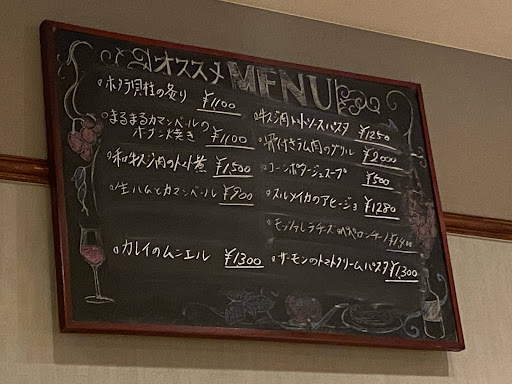 オススメ MENU
ホタテ貝柱の炙り ¥1100
まるまるカマンベールの
オーブン焼き ¥1100
和牛スジ肉のトマト煮 ¥1,500
生ハムとカマンベール ¥900
カレイのムニエル ¥1300
牛スジ肉トマトソースパスタ ¥1250
骨付きラム肉のグリル ¥2000
コーンポタージュスープ ¥500
スルメイカのアヒージョ ¥1280
モッツァレラチーズのペペロンチーノ ¥1,400
サーモンのトマトクリームパスタ ¥1,300